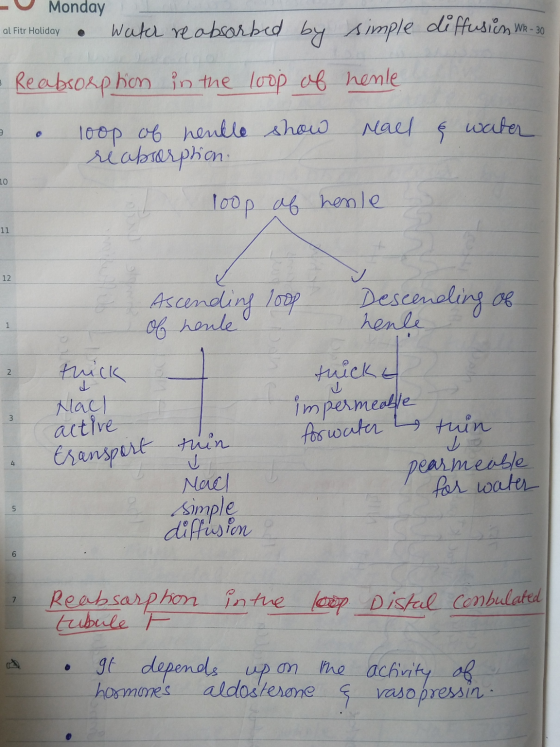 Monday
al Fitr Holiday
WR - 30
• Water reabsorbed by simple diffusion
Reabsorption in the loop of henle
• loop of henlle show Nacl & water
reabsorption.
loop of henle
Ascending loop
of henle
Descending of
henle
thick
↓
Nacl
active
transport
thin
↓
Nacl
simple
diffusion
thick
↓
impermeable
for water
thin
↓
pearmeable
for water
Reabsarption in the loop Distal Conbulated
tubule F
• It depends upon the activity of
hormones aldosterone & vasopressin.
•
9
10
11
12
1
2
3
4
5
6
7